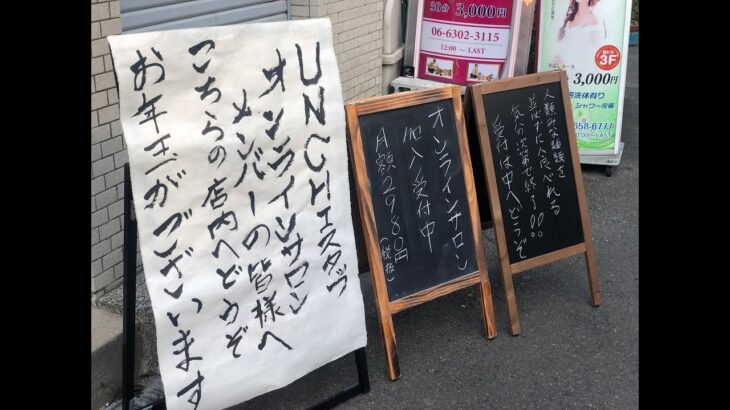 UNCHIスタッフ
オンラインサロン
メンバーの皆様へ
こちらの店内へどうぞ
お年玉がございます
オンラインサロン
入会受付中
月額2980円
(税抜)
人類みな麺類を
並ばずに食べれる
気分次第で終了!!
受付は中へどうぞ
30分 3,000円
06-6302-3115
12:00〜LAST
3F
3,000円
シャワー完備
658-6777
LAST